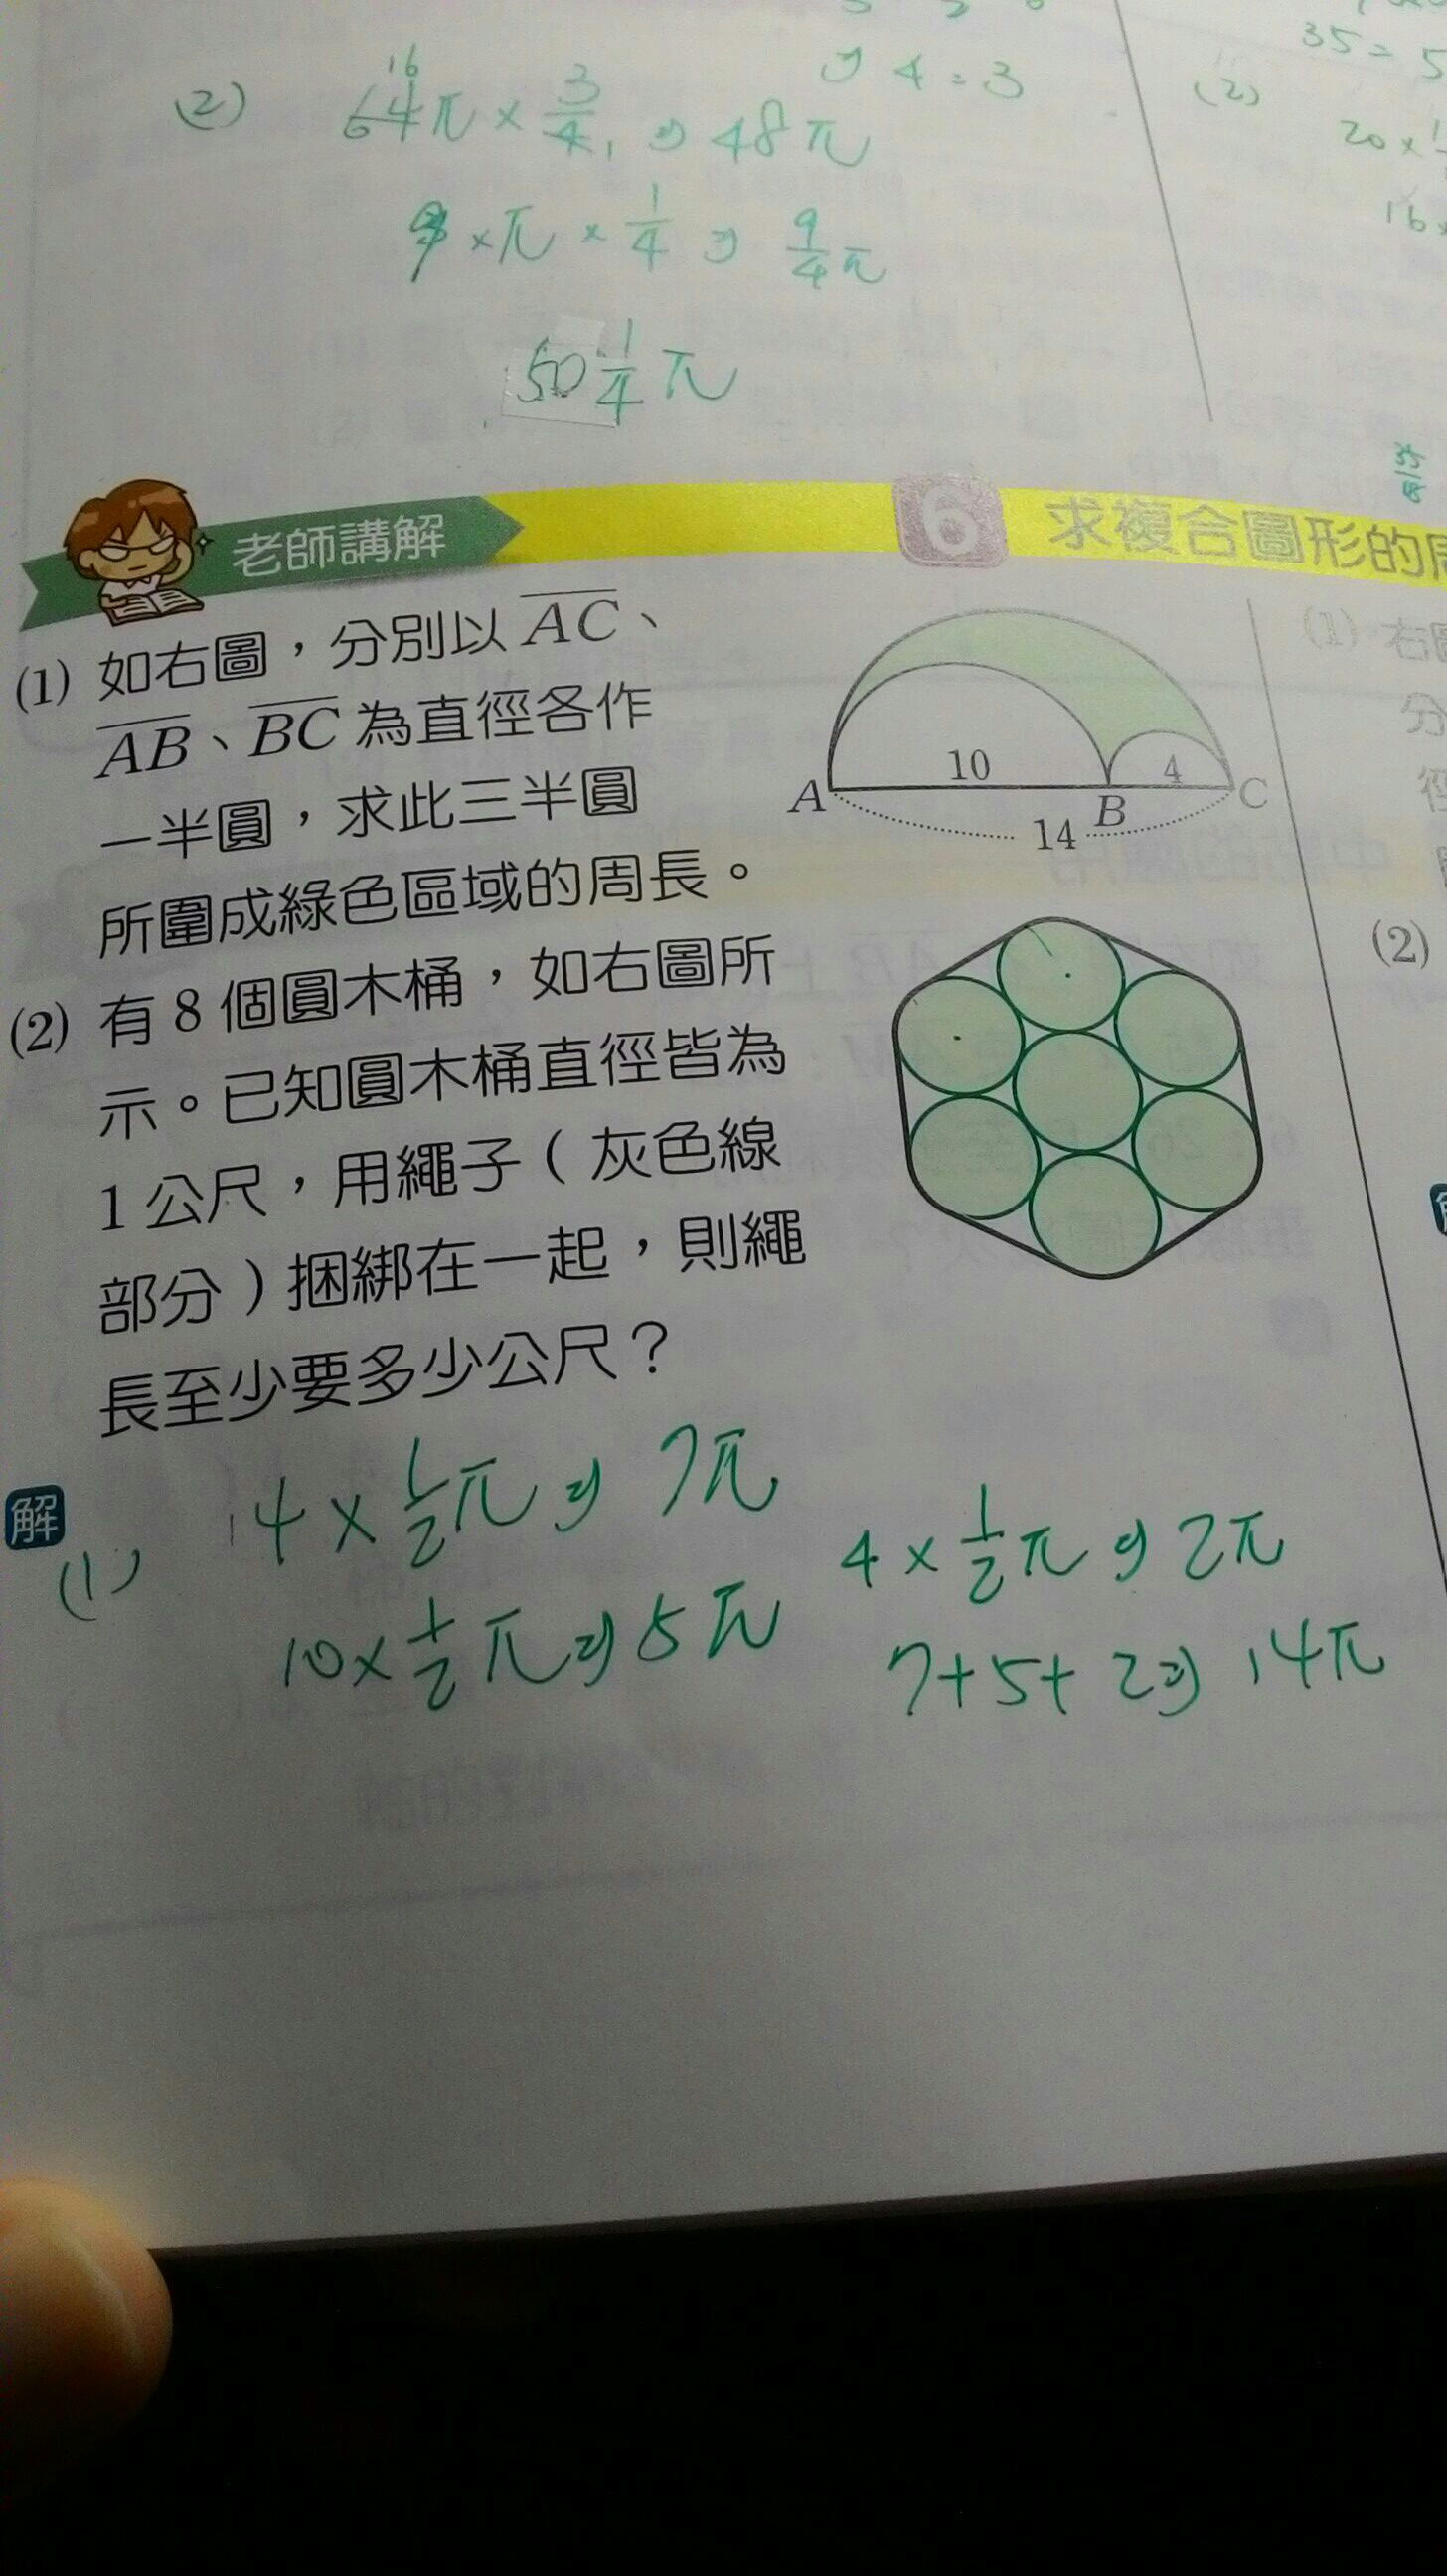 (2) 64π × 3/4 ⇒ 48π
16
1
4 = 3
35 = 5
(2)
20 ×
16
× π × 1/4 ⇒ 9/4 π
50 1/4 π
老師講解
6 求複合圖形的
(1) 如右圖，分別以 AC、
AB、BC 為直徑各作
一半圓，求此三半圓
所圍成綠色區域的周長。
10
4
A
B
C
14
(2) 有 8 個圓木桶，如右圖所
示。已知圓木桶直徑皆為
1 公尺，用繩子（灰色線
部分）捆綁在一起，則繩
長至少要多少公尺？
(1) 右
分
徑
(2)
解
(1)
14 × 1/2 π ⇒ 7π
10 × 1/2 π ⇒ 5π
4 × 1/2 π ⇒ 2π
7+5+2 ⇒ 14π